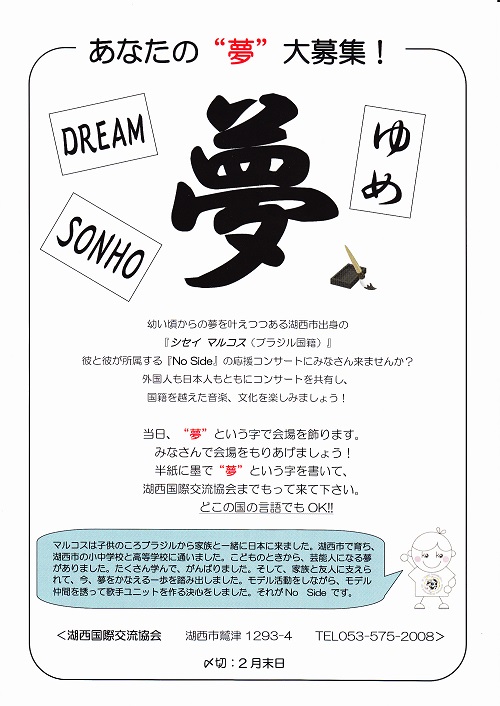 あなたの“夢”大募集！
DREAM
夢
ゆめ
SONHO
幼い頃からの夢を叶えつつある湖西市出身の
『シセイ マルコス（ブラジル国籍）』
彼と彼が所属する『No Side』の応援コンサートにみなさん来ませんか？
外国人も日本人もともにコンサートを共有し、
国籍を越えた音楽、文化を楽しみましょう！
当日、“夢”という字で会場を飾ります。
みなさんで会場をもりあげましょう！
半紙に墨で“夢”という字を書いて、
湖西国際交流協会までもって来て下さい。
どこの国の言語でもOK!!
マルコスは子供のころブラジルから家族と一緒に日本に来ました。湖西市で育ち、
湖西市の小中学校と高等学校に通いました。こどものときから、芸能人になる夢
がありました。たくさん学んで、がんばりました。そして、家族と友人に支えら
れて、今、夢をかなえる一歩を踏み出しました。モデル活動をしながら、モデル
仲間を誘って歌手ユニットを作る決心をしました。それがNo Side です。
＜湖西国際交流協会 湖西市鷲津1293-4 TEL053-575-2008＞
〆切：2月末日